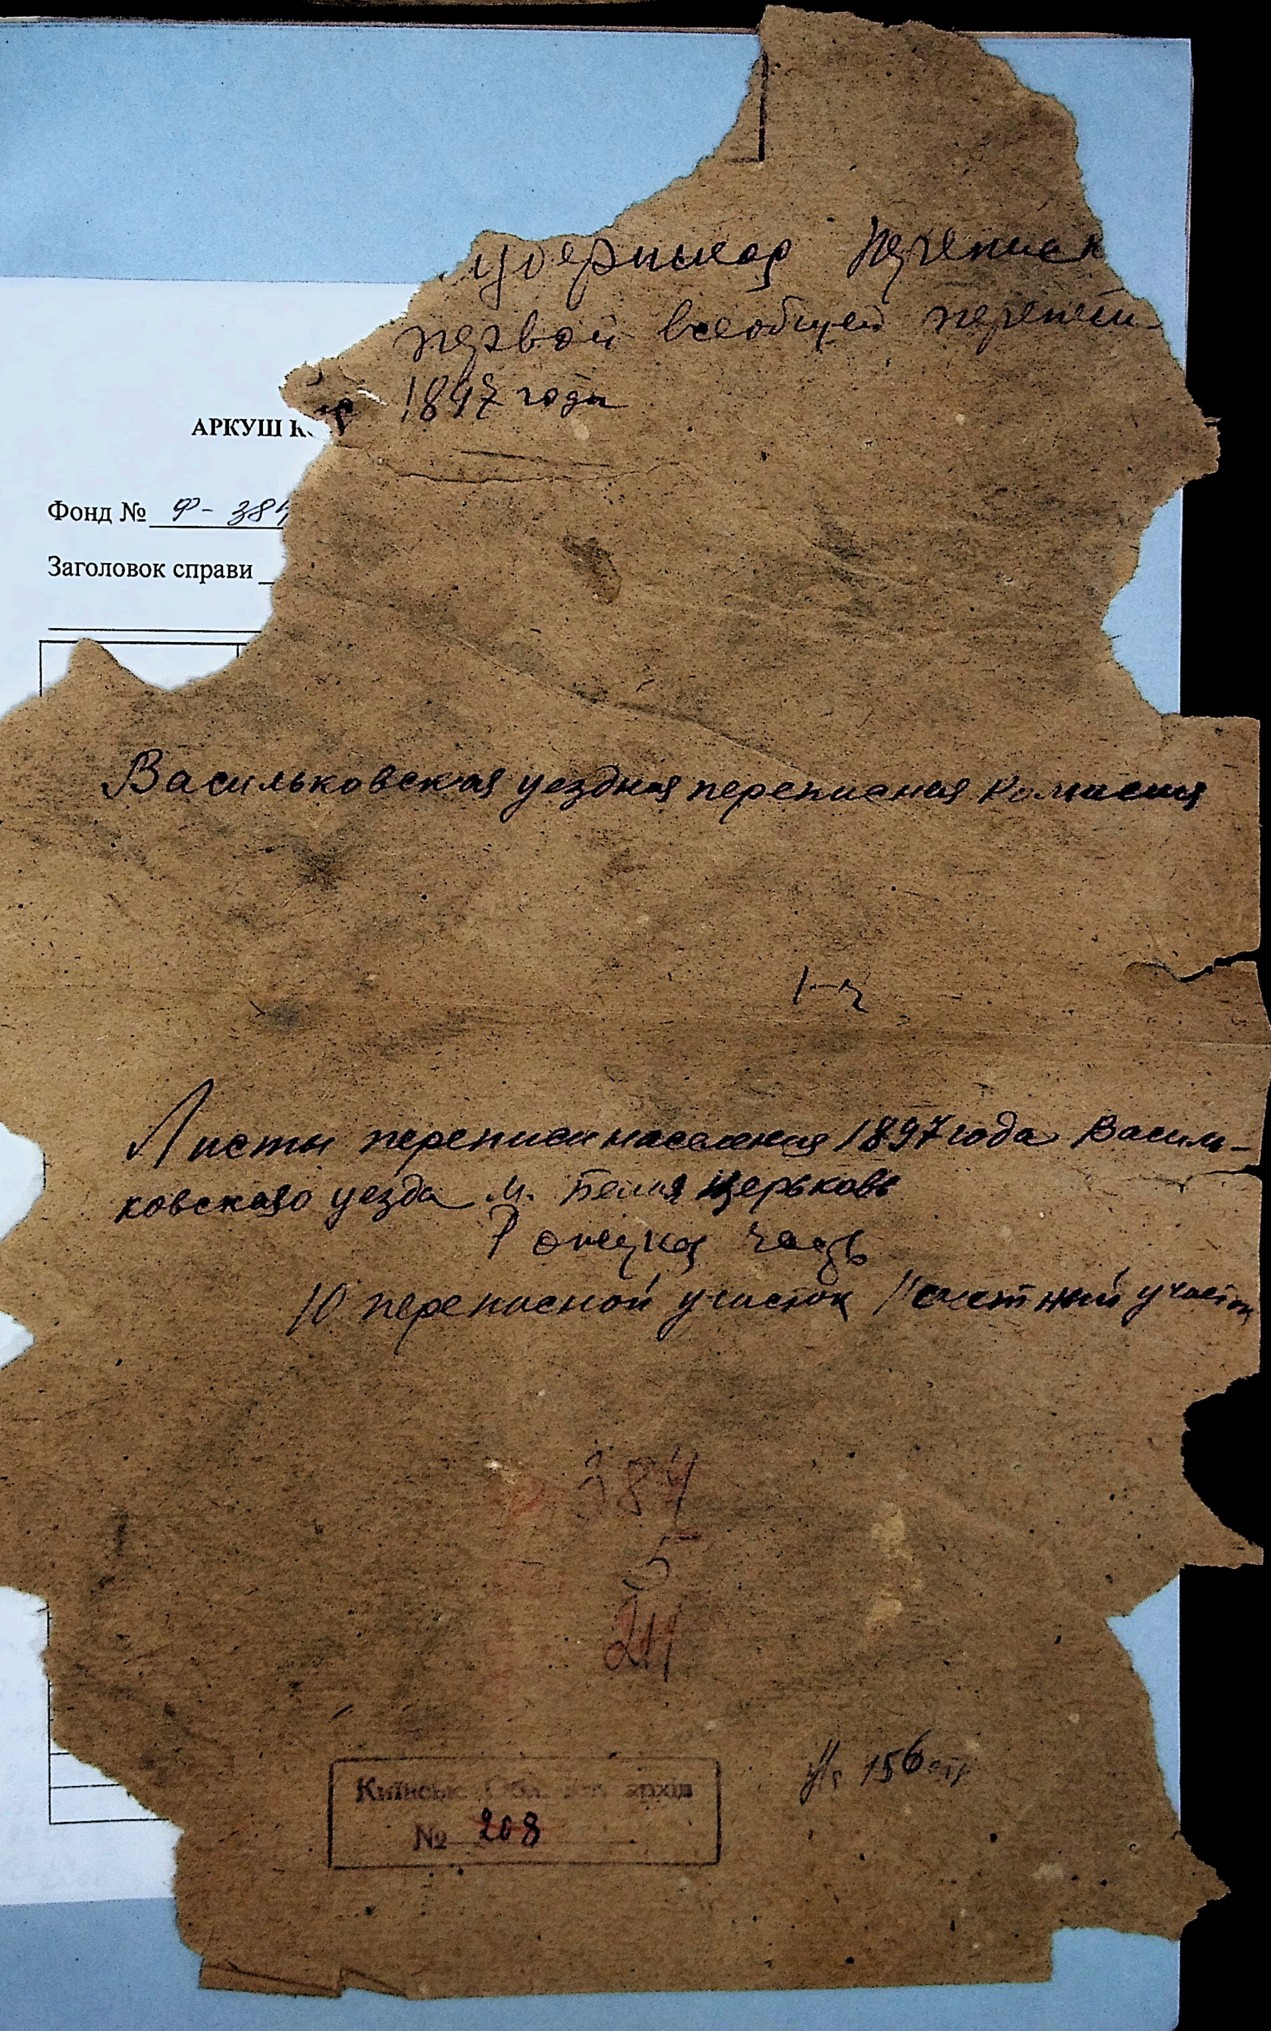 убернская переписн
первой всеобщей перепи
1897 года
АРКУШ К
Фонд № Ф- 384
Заголовок справи
Васильковская уездная переписная комиссия
1-ч
Листы переписи населения 1897 года Василь-
ковского уезда м. Белая Церковь
часть
10 переписной участок 1 счетный участок
384
5
211
Київськ Обл. архів
№ 208
156